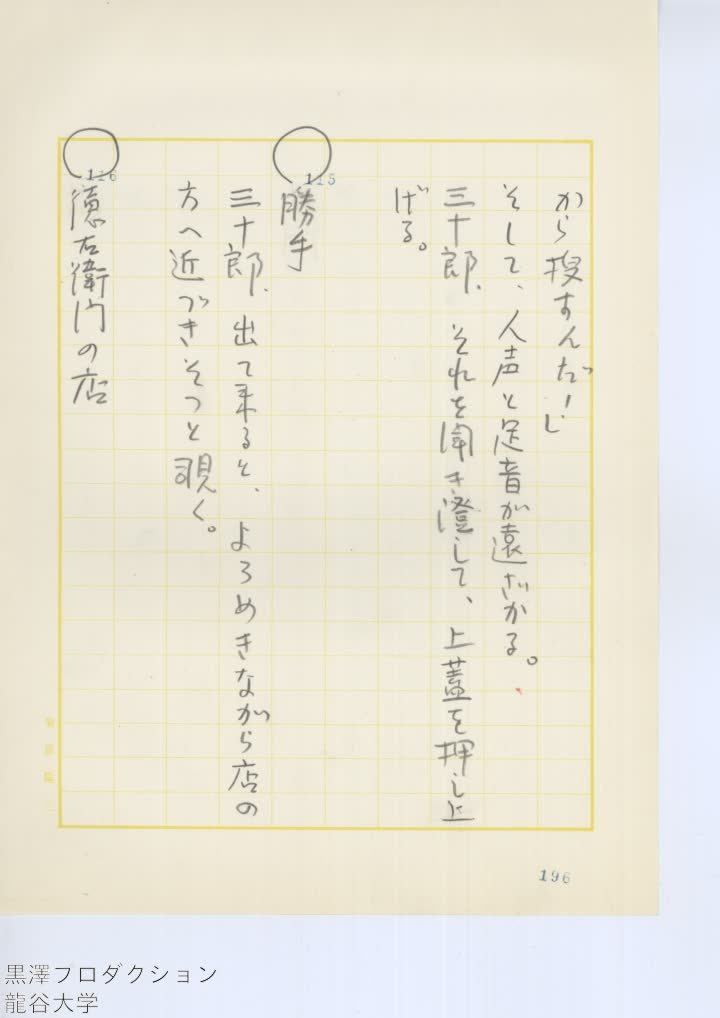 から捜すんだ！」
そして、人声と足音が遠ざかる。
三十郎、それを聞き澄して、上蓋を押し上
げる。
115
勝手
三十郎、出て来ると、よろめきながら店の
方へ近づきそっと覗く。
116
徳右衛門の店
196
黒澤プロダクション
龍谷大学